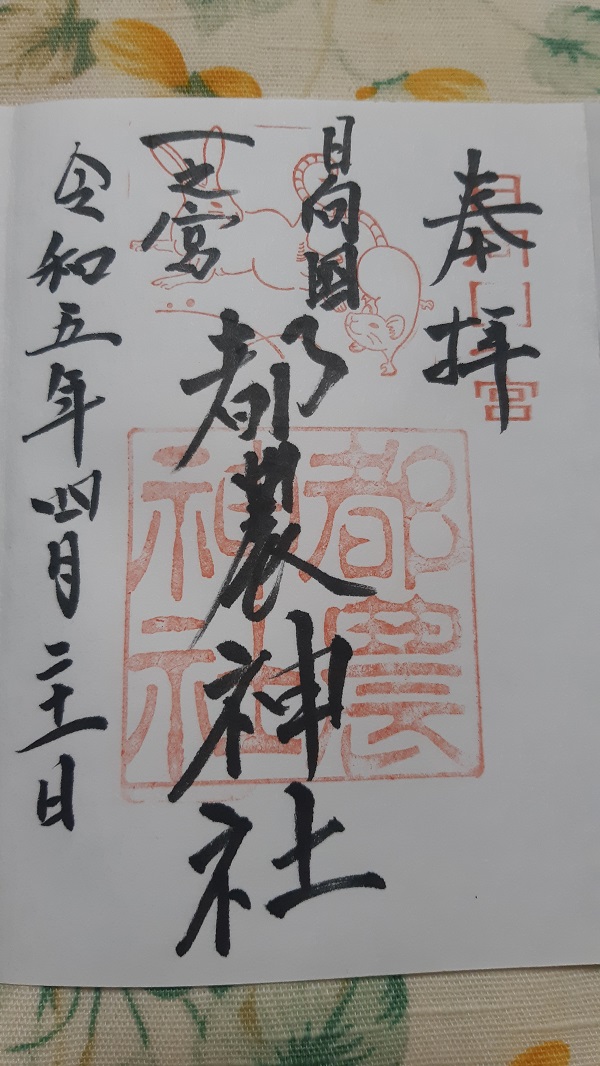 奉拝
日向国
一之宮
都農神社
令和五年四月二十一日
日向国一宮
都農神社